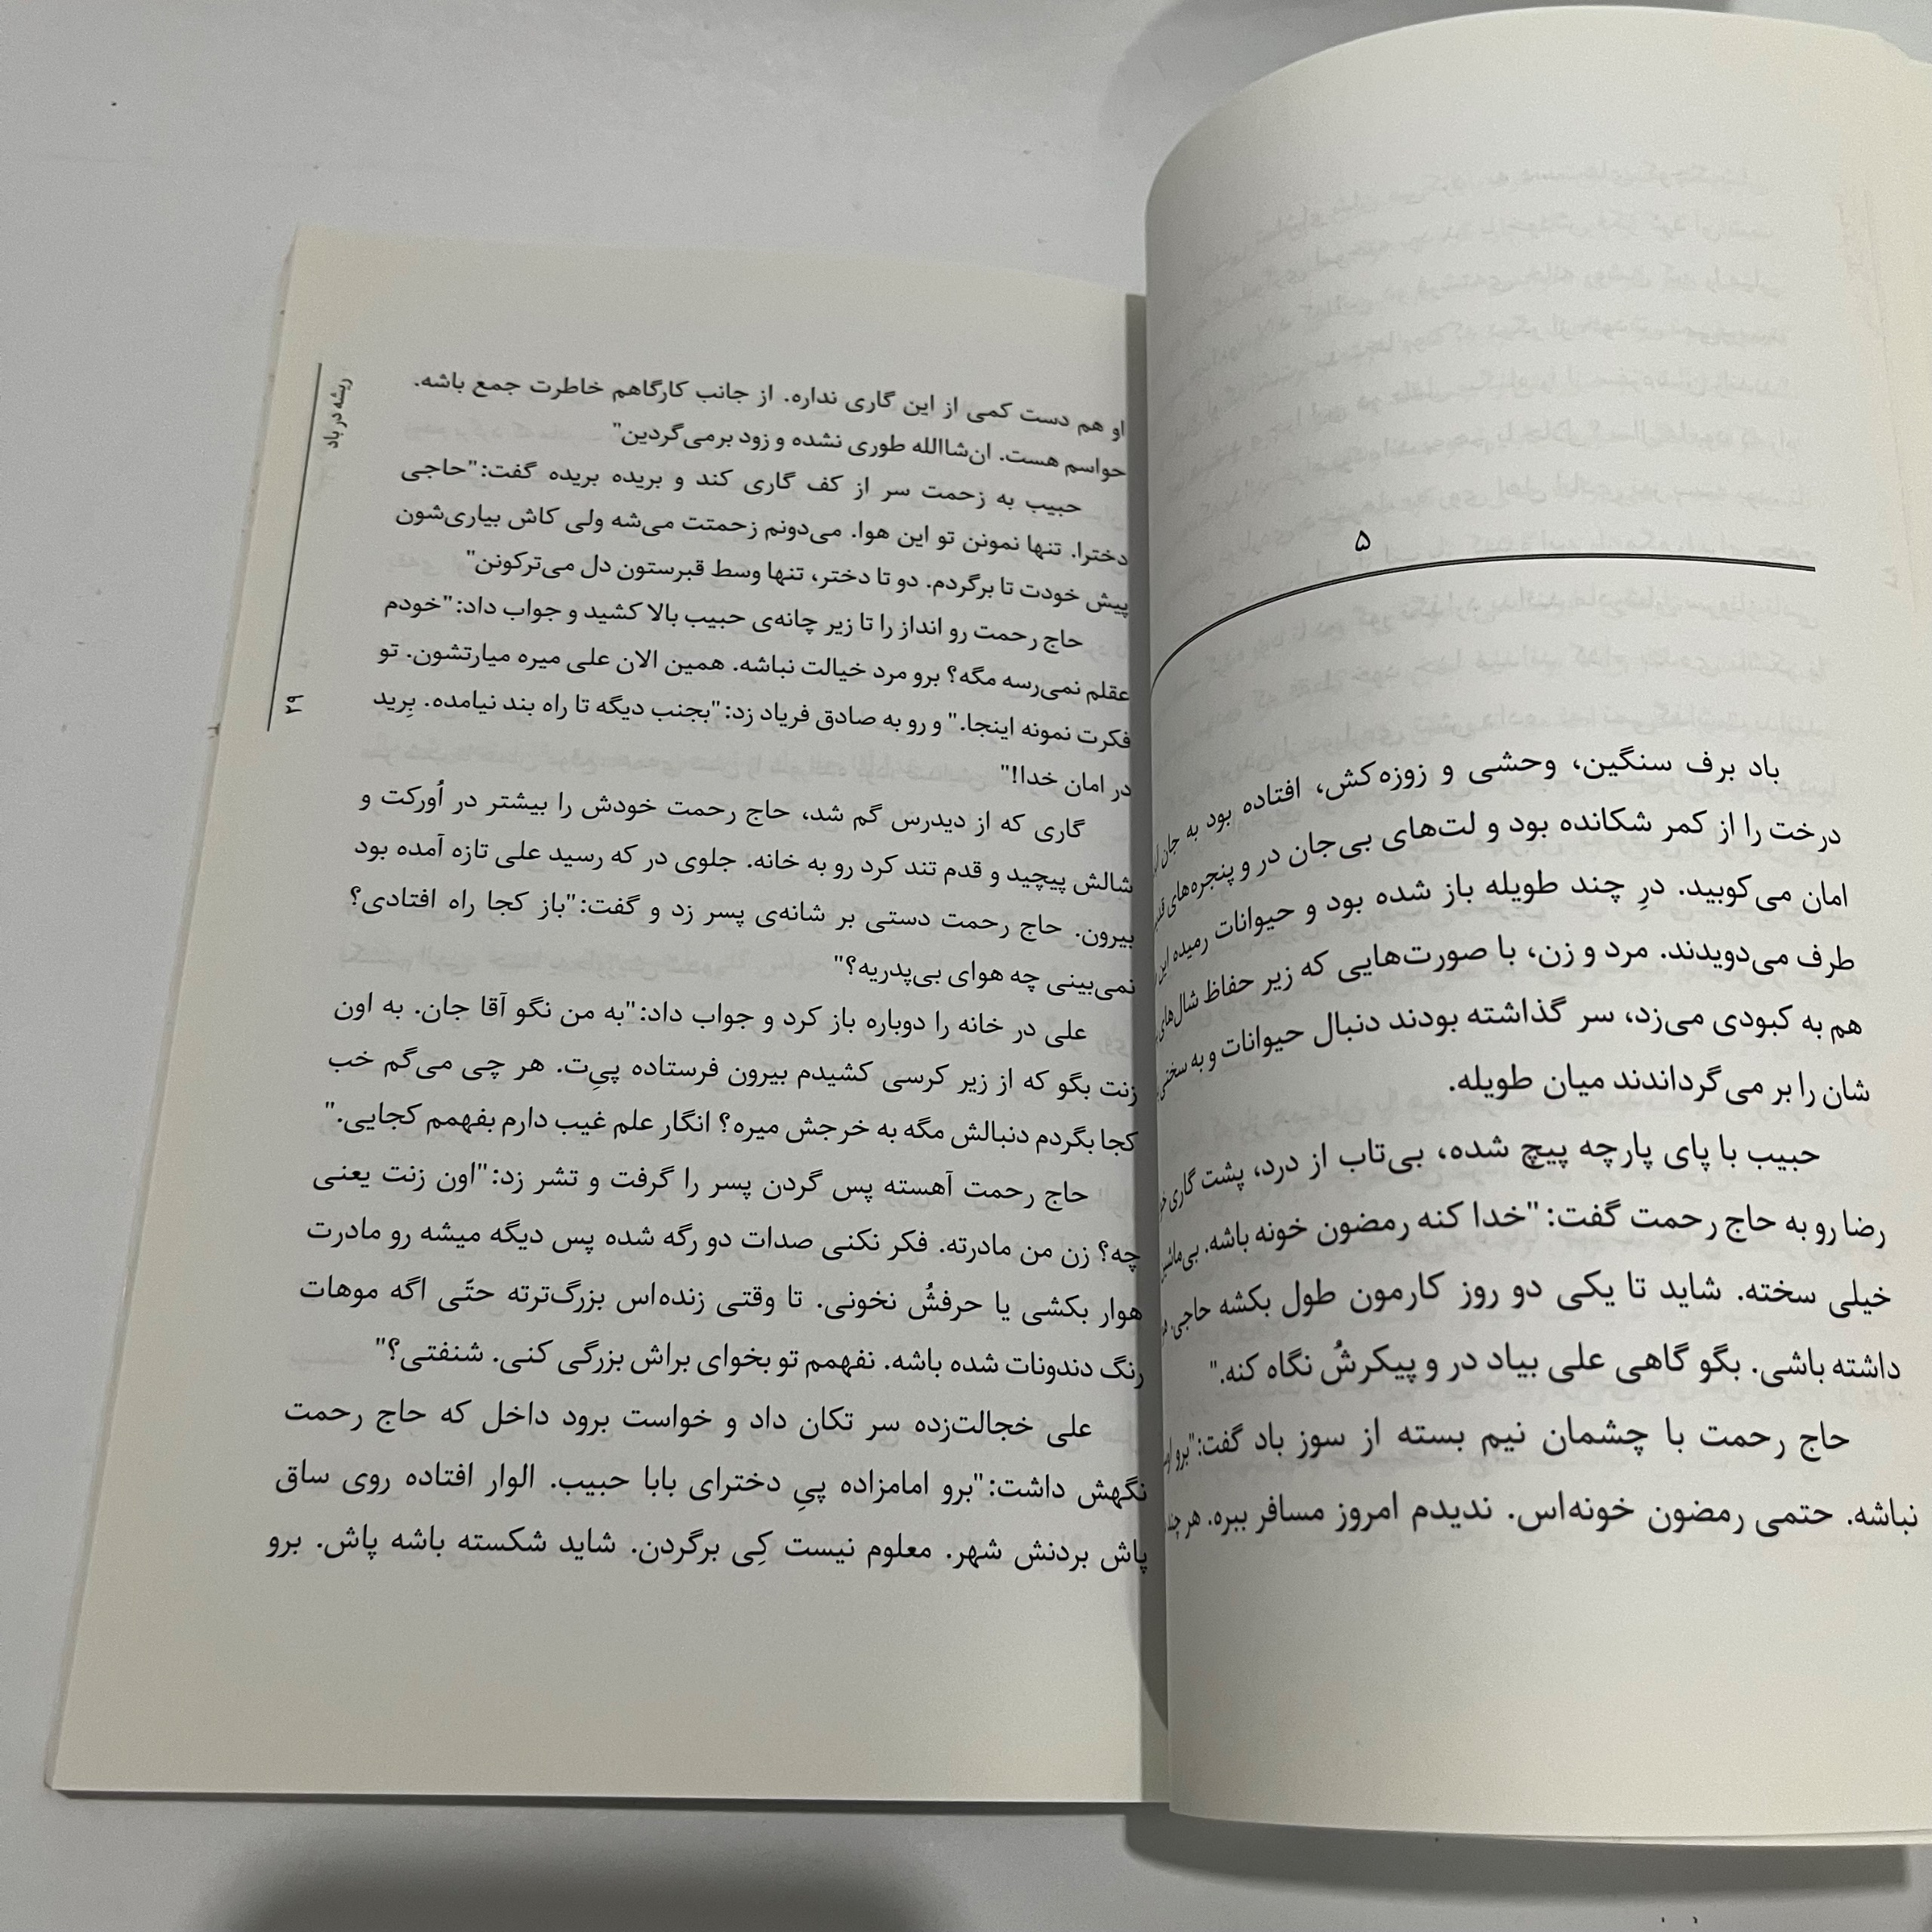 ۵
باد برف سنگین، وحشی و زوزه‌کش، افتاده بود به جان
درخت را از کمر شکانده بود و لت‌های بی‌جان در و پنجره‌های
امان می‌کوبید. درِ چند طویله باز شده بود و حیوانات رمیده این
طرف می‌دویدند. مرد و زن، با صورت‌هایی که زیر حفاظ شال‌های
هم به کبودی می‌زد، سر گذاشته بودند دنبال حیوانات و به سختی
شان را بر می‌گرداندند میان طویله.
حبیب با پای پارچه پیچ شده، بی‌تاب از درد، پشت گاری
رضا رو به حاج رحمت گفت:"خدا کنه رمضون خونه باشه. بی‌ماشین
خیلی سخته. شاید تا یکی دو روز کارمون طول بکشه حاجی.
داشته باشی. بگو گاهی علی بیاد در و پیکرشُ نگاه کنه."
حاج رحمت با چشمان نیم بسته از سوز باد گفت:"برو
نباشه. حتمی رمضون خونه‌اس. ندیدم امروز مسافر ببره. هر چند
ریشه در باد
۲۹
او هم دست کمی از این گاری نداره. از جانب کارگاهم خاطرت جمع باشه.
حواسم هست. ان‌شاالله طوری نشده و زود برمی‌گردین"
حبیب به زحمت سر از کف گاری کند و بریده بریده گفت:"حاجی
دخترا. تنها نمونن تو این هوا. می‌دونم زحمتت می‌شه ولی کاش بیاری‌شون
پیش خودت تا برگردم. دو تا دختر، تنها وسط قبرستون دل می‌ترکونن"
حاج رحمت رو انداز را تا زیر چانه‌ی حبیب بالا کشید و جواب داد:"خودم
عقلم نمی‌رسه مگه؟ برو مرد خیالت نباشه. همین الان علی میره میارتشون. تو
فکرت نمونه اینجا." و رو به صادق فریاد زد:"بجنب دیگه تا راه بند نیامده. بِرید
در امان خدا!"
گاری که از دیدرس گم شد، حاج رحمت خودش را بیشتر در اُورکت و
شالش پیچید و قدم تند کرد رو به خانه. جلوی در که رسید علی تازه آمده بود
بیرون. حاج رحمت دستی بر شانه‌ی پسر زد و گفت:"باز کجا راه افتادی؟
نمی‌بینی چه هوای بی‌پدریه؟"
علی در خانه را دوباره باز کرد و جواب داد:"به من نگو آقا جان. به اون
زنت بگو که از زیر کرسی کشیدم بیرون فرستاده پیِ‌ت. هر چی می‌گم خب
کجا بگردم دنبالش مگه به خرجش میره؟ انگار علم غیب دارم بفهمم کجایی."
حاج رحمت آهسته پس گردن پسر را گرفت و تشر زد:"اون زنت یعنی
چه؟ زن من مادرته. فکر نکنی صدات دو رگه شده پس دیگه میشه رو مادرت
هوار بکشی یا حرفشُ نخونی. تا وقتی زنده‌اس بزرگ‌ترته حتّی اگه موهات
رنگ دندونات شده باشه. نفهمم تو بخوای براش بزرگی کنی. شنفتی؟"
علی خجالت‌زده سر تکان داد و خواست برود داخل که حاج رحمت
نگهش داشت:"برو امامزاده پیِ دخترای بابا حبیب. الوار افتاده روی ساق
پاش بردنش شهر. معلوم نیست کِی برگردن. شاید شکسته باشه پاش. برو